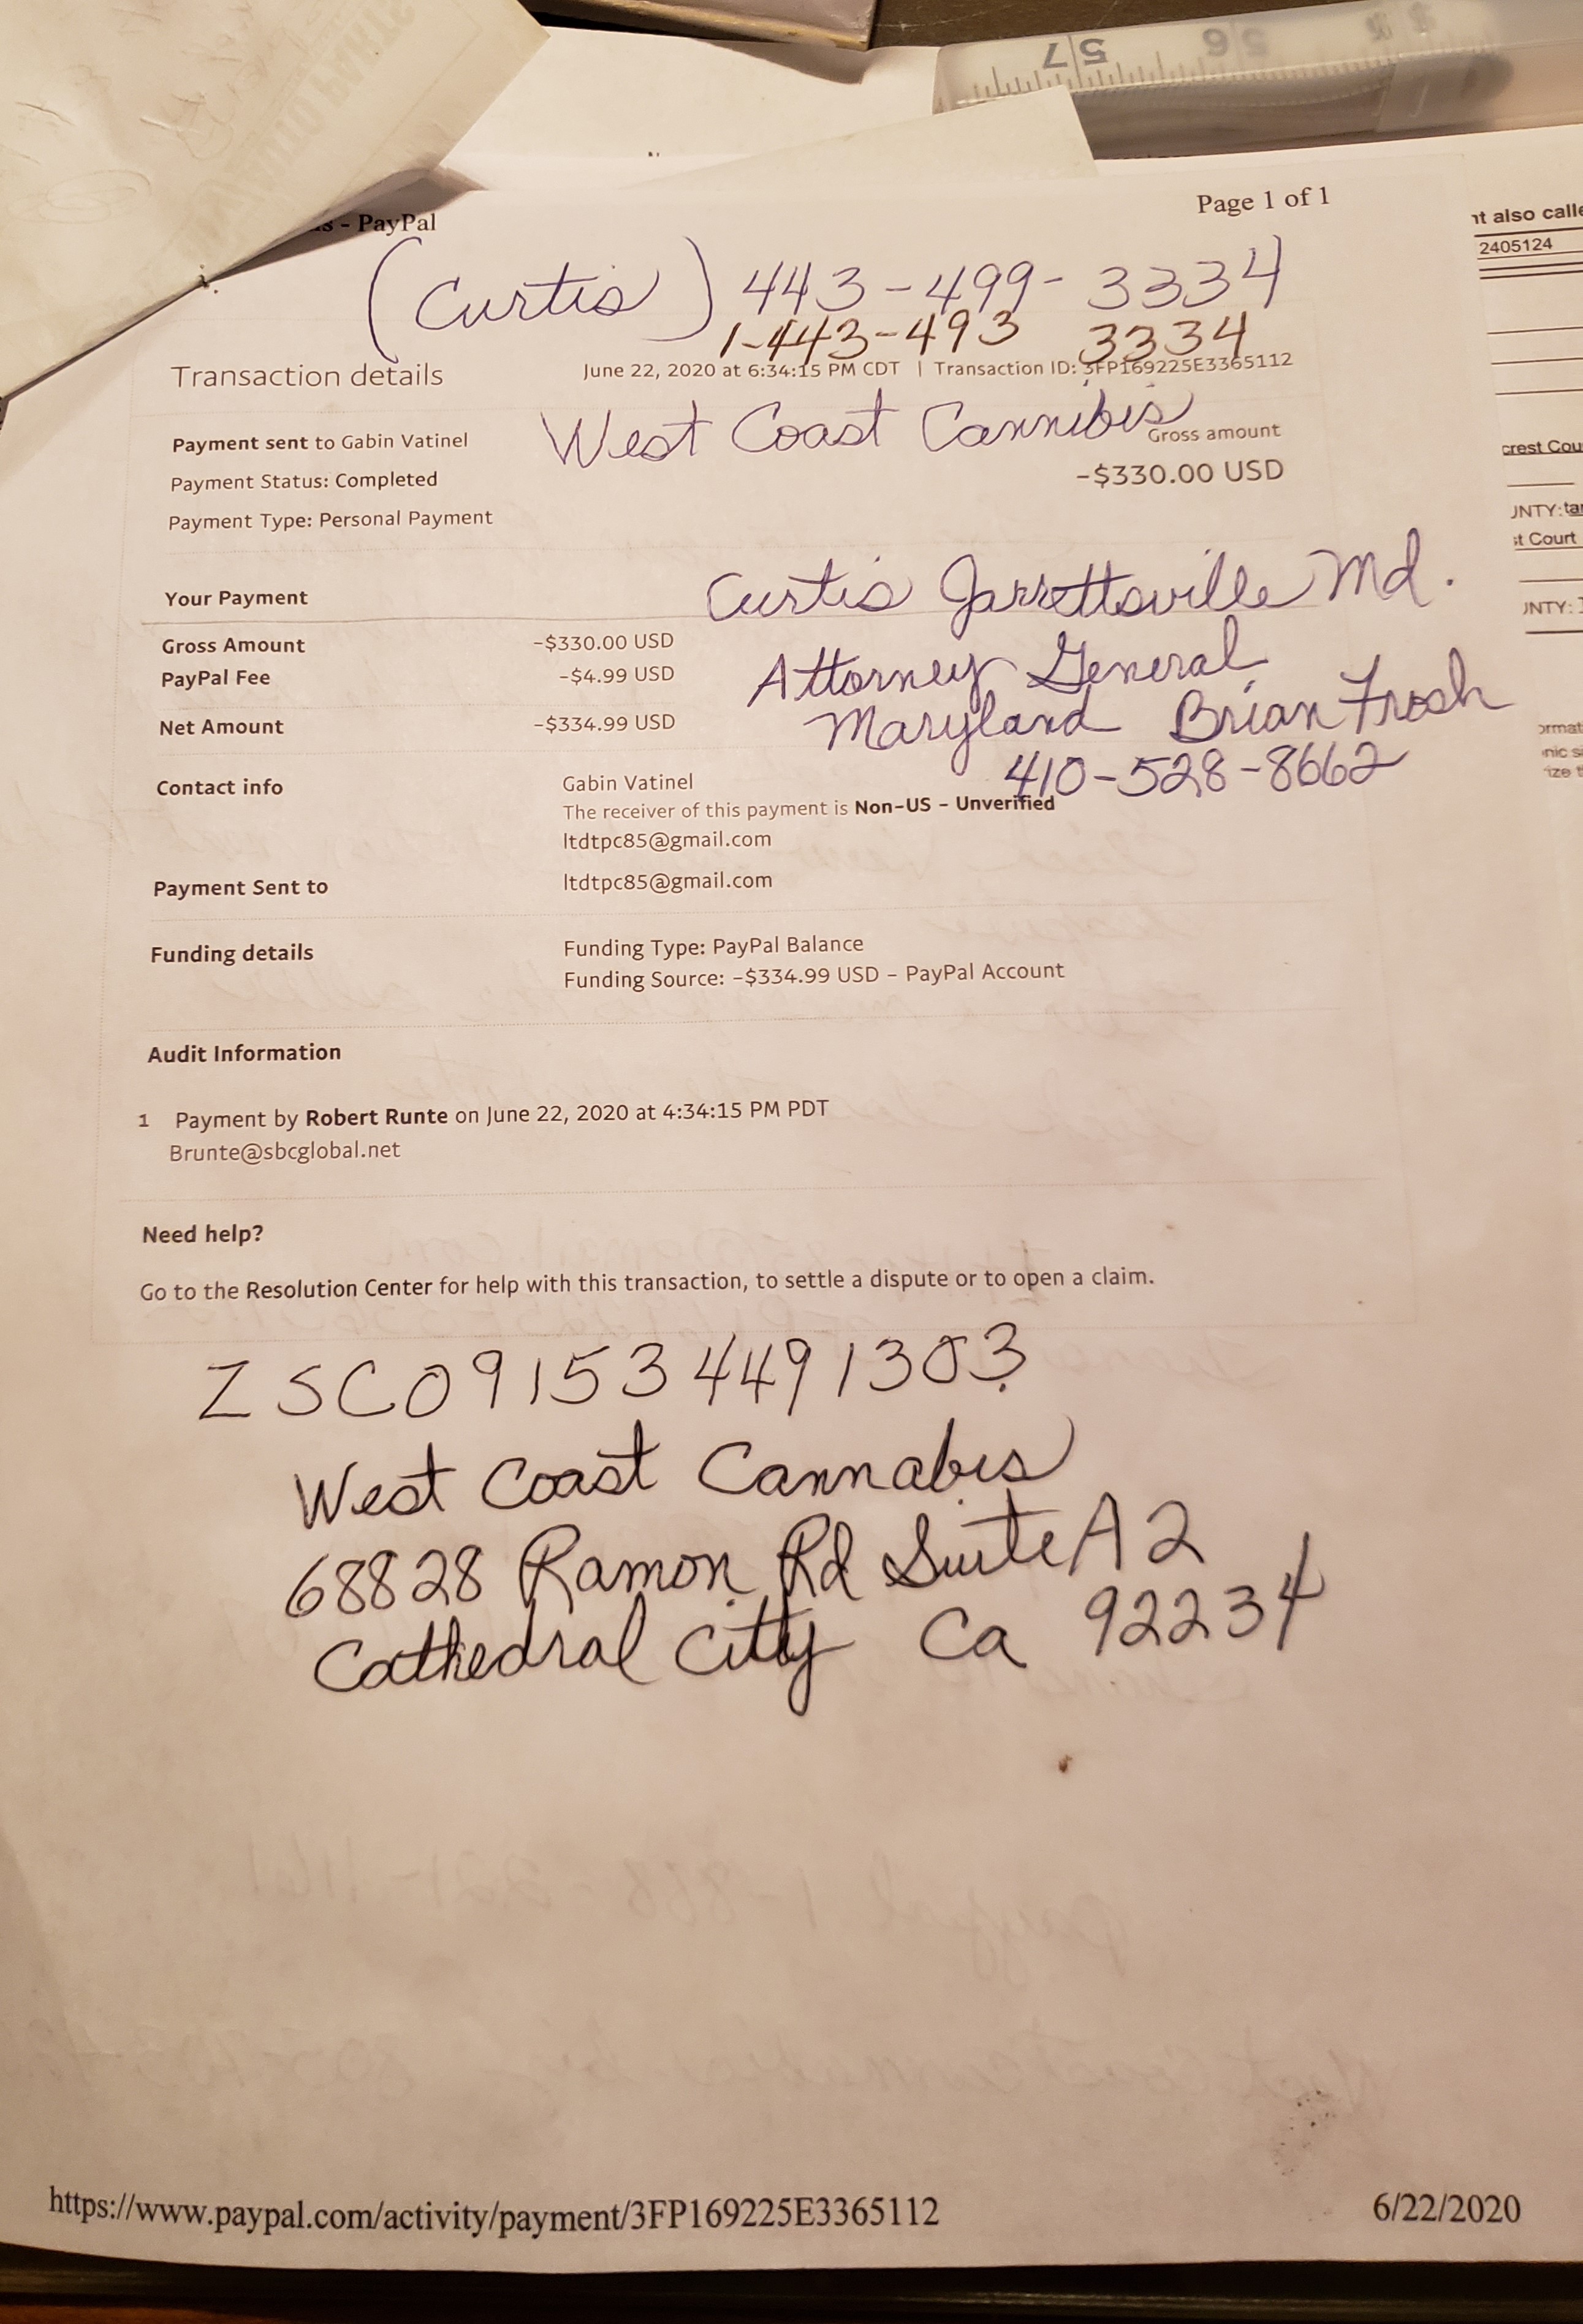 57 56
Page 1 of 1
- PayPal
(Curtis) 443-499-3334
1-443-493 3334
Transaction details
June 22, 2020 at 6:34:15 PM CDT | Transaction ID: 3FP169225E3365112
West Coast Cannibis
Payment sent to Gabin Vatinel
Gross amount
Payment Status: Completed
-$330.00 USD
Payment Type: Personal Payment
Curtis Jarrettsville Md.
Your Payment
Gross Amount -$330.00 USD
Attorney General
PayPal Fee -$4.99 USD
Maryland Brian Frosh
Net Amount -$334.99 USD
410-528-8662
Contact info Gabin Vatinel
The receiver of this payment is Non-US - Unverified
ltdtpc85@gmail.com
Payment Sent to ltdtpc85@gmail.com
Funding details Funding Type: PayPal Balance
Funding Source: -$334.99 USD - PayPal Account
Audit Information
1 Payment by Robert Runte on June 22, 2020 at 4:34:15 PM PDT
Brunte@sbcglobal.net
Need help?
Go to the Resolution Center for help with this transaction, to settle a dispute or to open a claim.
ZSC091534491303
West Coast Cannabis
68828 Ramon Rd Suite A2
Cathedral City Ca 92234
https://www.paypal.com/activity/payment/3FP169225E3365112 6/22/2020
also
2405124
Court